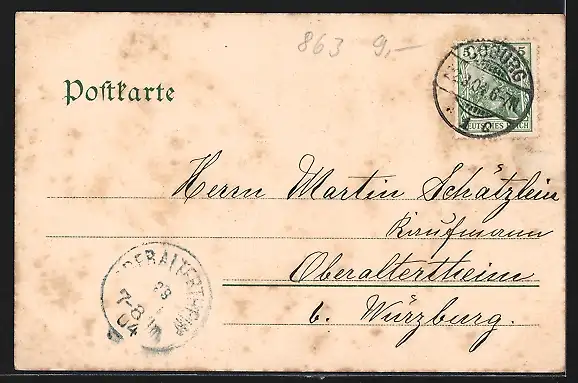 863 9,-
COBURG
Postkarte
DEUTSCHES REICH
Herrn Martin Schätzlein
Kaufmann
Oberaltertheim
b. Würzburg.
OBERALTERTHEIM
7-8
04